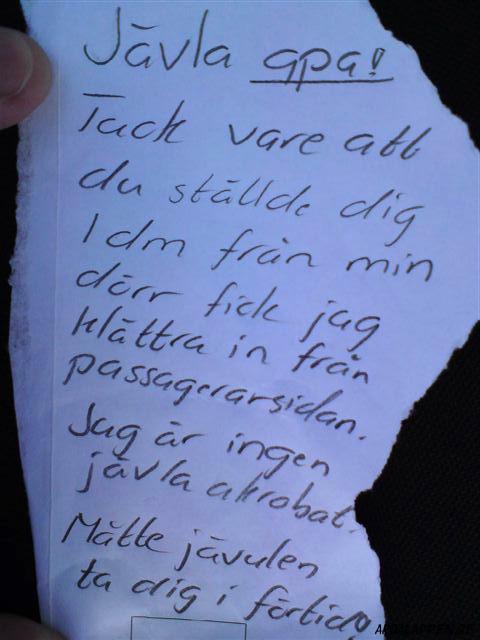 Jävla apa!
Tack vare att
du ställde dig
1 dm från min
dörr fick jag
klättra in från
passagerarsidan.
Jag är ingen
jävla akrobat.
Måtte jävulen
ta dig i förtid!